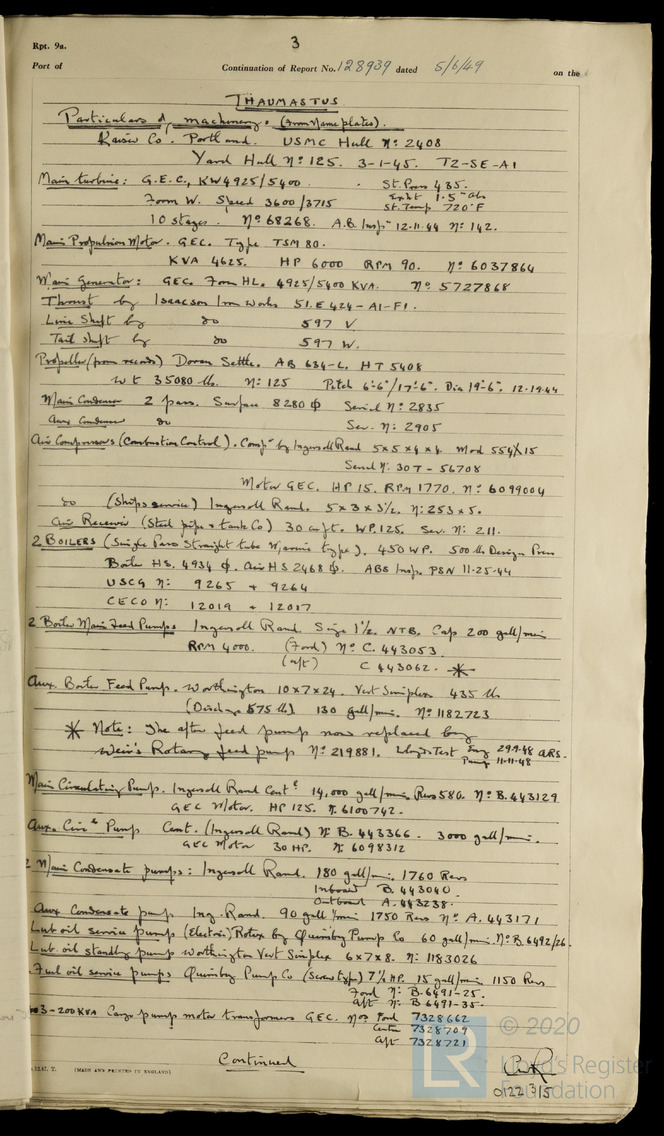 Rpt. 9a.
3
Port of
Continuation of Report No. 128939 dated 5/6/49 on the
THAUMASTUS
Particulars of machinery: (from Name plates).
Kaiser Co. Portland. USMC Hull No: 2408
Yard Hull No: 125. 3-1-45. T2-SE-A1
Main turbine: G.E.C., KW4925/5400. St. Press 435.
Exht 1.5" Abs
Form W. Speed 3600/3715 St. Temp 720°F
10 stages. No 68268. A.B. Insp 12-11-44 No: 142.
Main Propulsion Motor. GEC. Type TSM 80.
KVA 4625. HP 6000 RPM 90. No: 6037864
Main Generator: GEC. Form HL. 4925/5400 KVA. No: 5727868
Thrust by Isaacson Iron Works 51.E 424-A1-F1.
Line Shaft by do 597 V.
Tail shaft by do 597 W.
Propeller (from records) Doran Settle. AB 634-L. HT 5408
Wt 35080 lb. No: 125 Pitch /17'6". Dia 19'-6". 12.19.44
Main Condenser 2 pass. Surface 8280 ф Serial No: 2835
Aux Condenser do Ser. No: 2905
Air Compressors (Combustion Control). Comp. by Ingersoll Rand 5x5x4x4. Mod 15
Serial No: 30T-56708
Motor GEC. HP 15. RPM 1770. No: 6099004
do (Ships service) Ingersoll Rand. 5x3x3½. No: 253x5.
Air Receiver (Steel pipe & tank Co) 30 cu ft. WP.125. Ser. No: 211.
2 BOILERS (Single Pass Straight tube Marine type). 450 WP. 500 lb Design Press
Boiler HS. 4934 ф. Air HS 2468 ф. ABS Insp. PSN 11-25-44
USCG No: 9265 + 9264
CECO No: 12019 + 12017
2 Boiler Main Feed Pumps Ingersoll Rand. Size 1½. NTB. Cap 200 gall/min
RPM 4000. (Ford) No C. 443053.
(aft) C 443062. *
Aux. Boiler Feed Pump. Worthington 10x7x24. Vert Simplex 435 lb
(Discharge 575 lb) 130 gall/min. No: 1182723
* Note: The after feed pump now replaced by
Weir's Rotary feed pump No: 219881. Lloyds Test 29.9.48 ARS.
Pump 11-11-48
Main Circulating Pump. Ingersoll Rand Cent 14,000 gall/min Revs 580. No: B.443129
GEC Motor. HP 125. No: 6100742.
Aux. Circ Pump Cent. (Ingersoll Rand) No: B. 443366. 3000 gall/min.
GEC Motor 30 HP. No: 6098312
2 Main Condensate pumps: Ingersoll Rand. 180 gall/min. 1760 Revs
Inboard B. 443040.
Outboard A. 443238.
Aux Condensate pump Ing. Rand. 90 gall/min 1750 Revs No. A. 443171
Lub. oil service pump (Electric) Rotex by Quimby Pump Co 60 gall/min. No: B.6492/26.
Lub. oil standby pump Worthington Vert Simplex 6x7x8. No: 1183026
Fuel oil service pumps Quimby Pump Co (Screw type) 7½ HP. 15 gall/min 1150 Revs
Ford No: B.6491-25.
Aft No: B.6491-35.
3-200KVA Cargo pump motor transformers GEC. Nos Ford 7328662
Centre 7328709
Aft 7328721
Continued
(MADE AND PRINTED IN ENGLAND)
0122 315
© 2020
LR
Lloyd's Register
Foundation